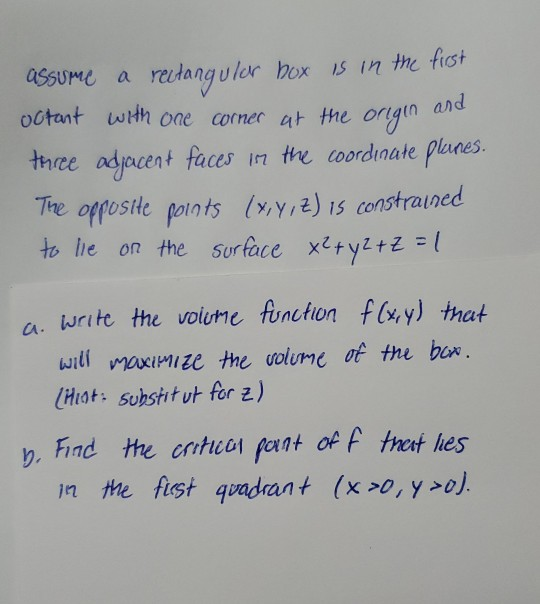 assume a rectangular box is in the first
octant with one corner at the origin and
three adjacent faces in the coordinate planes.
The opposite points (x,y,z) is constrained
to lie on the surface x²+y²+z = 1
a. Write the volume function f(x,y) that
will maximize the volume of the box.
(Hint: substitut for z)
b. Find the critical point of f that lies
in the first quadrant (x>0, y>0).